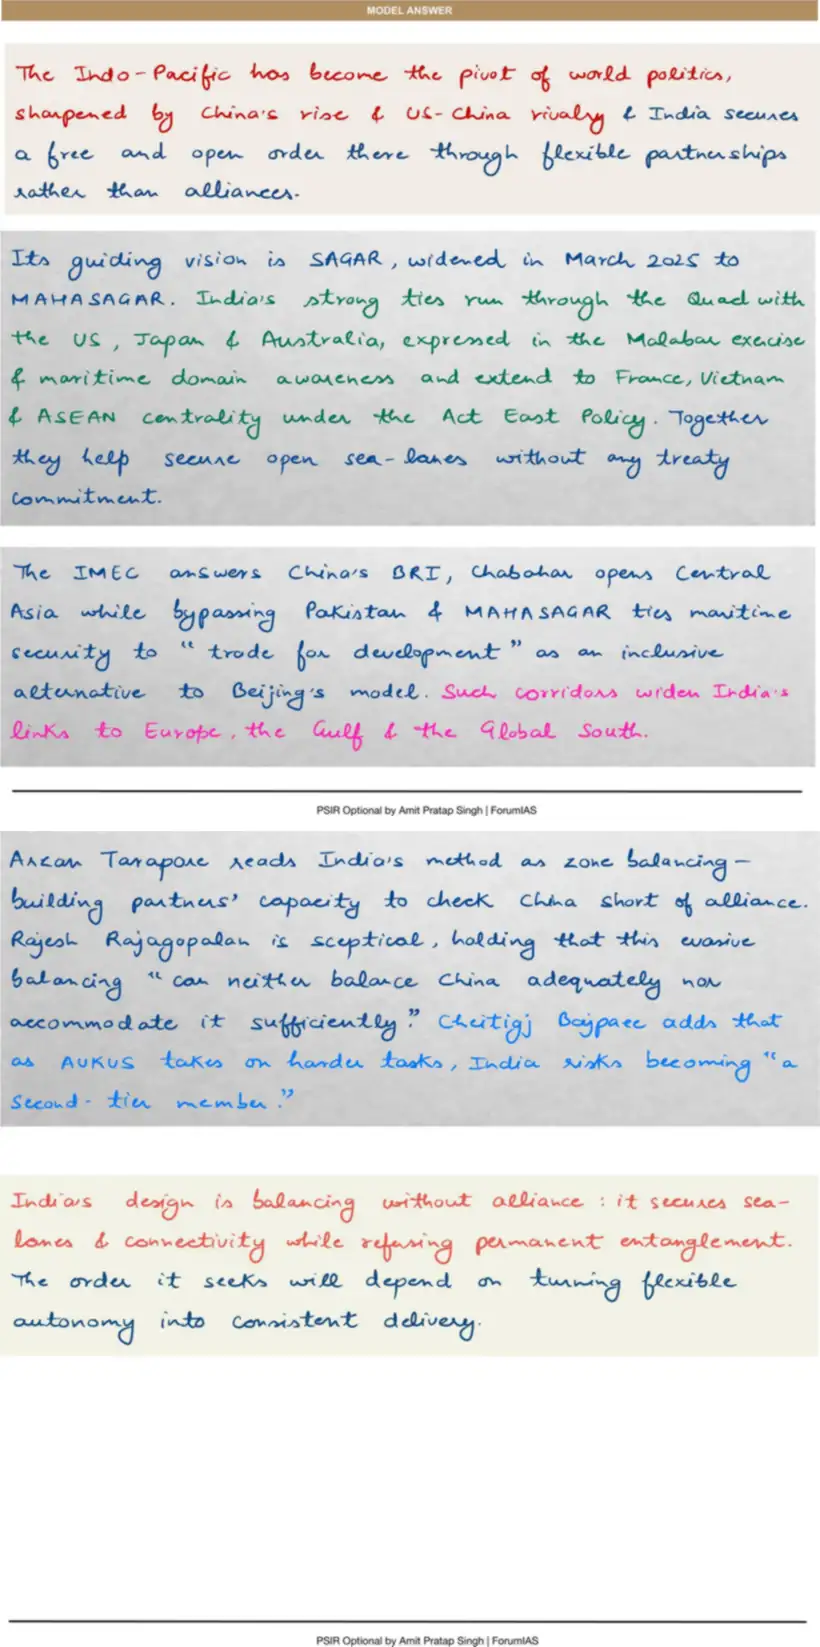 MODEL ANSWER
The Indo-Pacific has become the pivot of world politics,
sharpened by China's rise & US-China rivalry & India secures
a free and open order there through flexible partnerships
rather than alliances.
Its guiding vision is SAGAR, widened in March 2025 to
MAHASAGAR. India's strong ties run through the Quad with
the US, Japan & Australia, expressed in the Malabar exercise
& maritime domain awareness and extend to France, Vietnam
& ASEAN centrality under the Act East Policy. Together
they help secure open sea-lanes without any treaty
commitment.
The IMEC answers China's BRI, Chabahar opens Central
Asia while bypassing Pakistan & MAHASAGAR ties maritime
security to "trade for development" as an inclusive
alternative to Beijing's model. Such corridors widen India's
links to Europe, the Gulf & the Global South.
PSIR Optional by Amit Pratap Singh | ForumIAS
Arzan Tarapore reads India's method as zone balancing-
building partners' capacity to check China short of alliance.
Rajesh Rajagopalan is sceptical, holding that this evasive
balancing "can neither balance China adequately nor
accommodate it sufficiently." Chietigj Bajpaee adds that
as AUKUS takes on harder tasks, India risks becoming "a
second-tier member."
India's design is balancing without alliance : it secures sea-
lanes & connectivity while refusing permanent entanglement.
The order it seeks will depend on turning flexible
autonomy into consistent delivery.
PSIR Optional by Amit Pratap Singh | ForumIAS